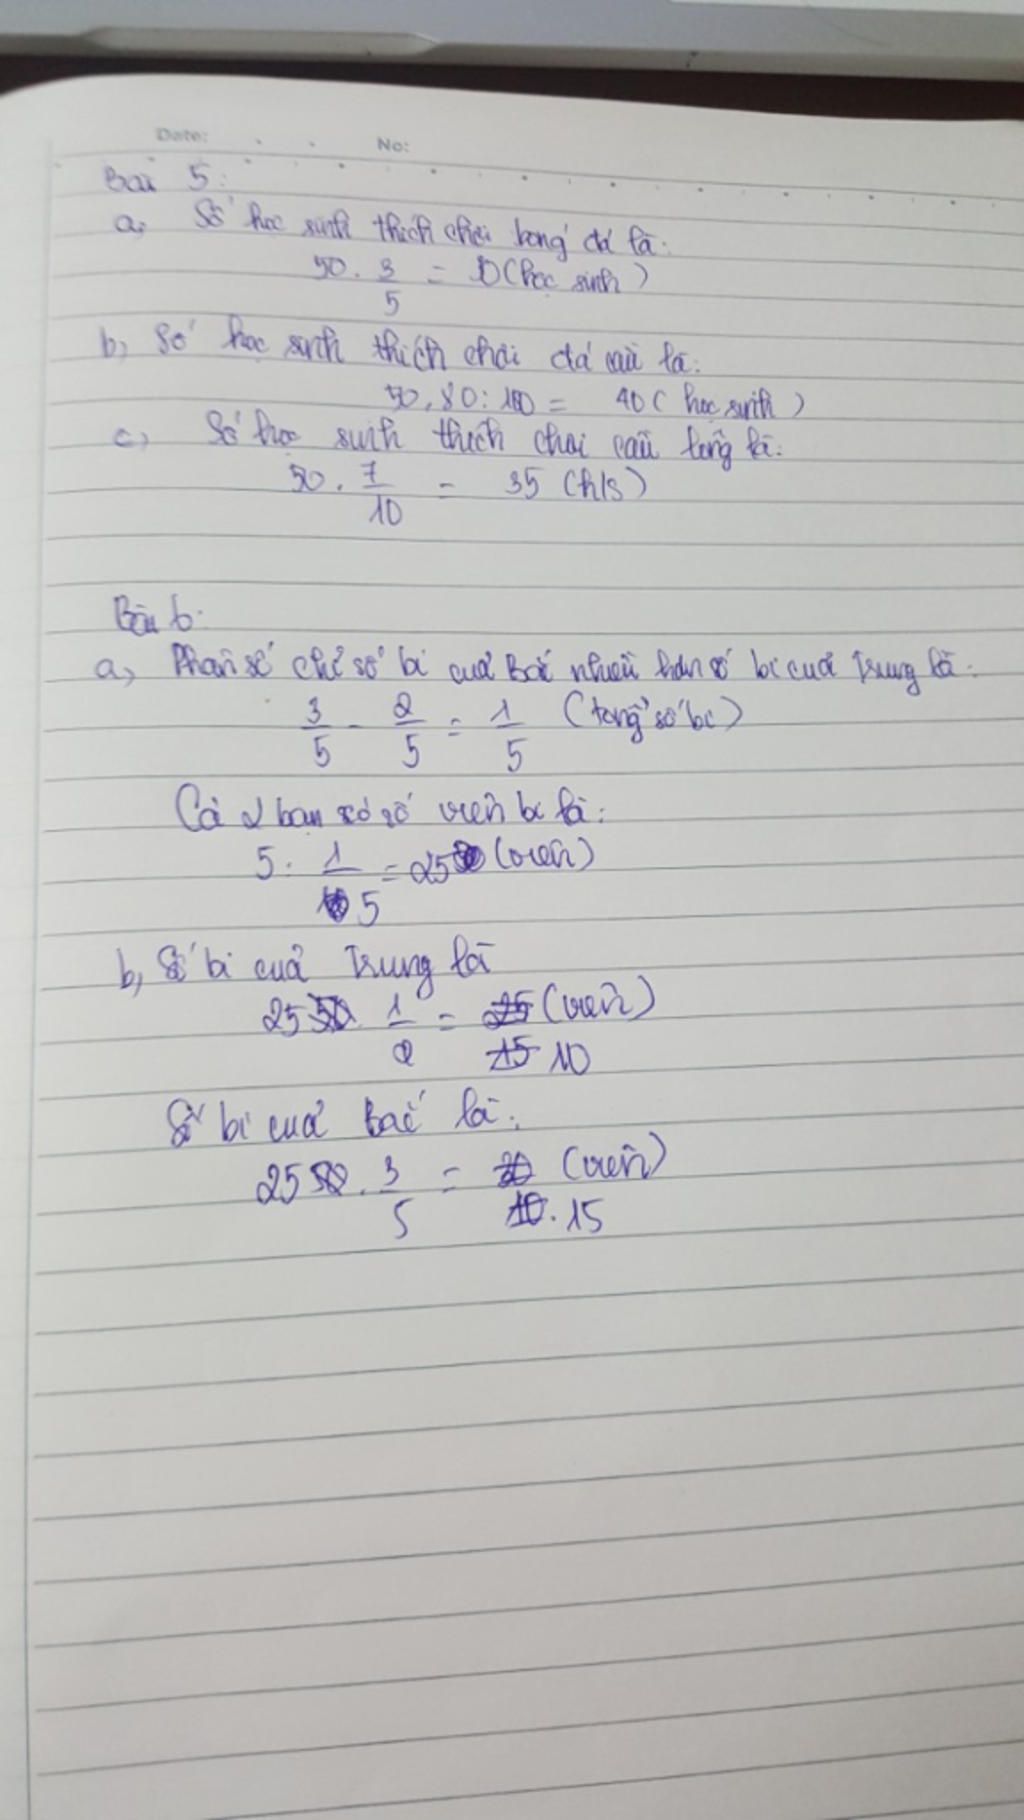 Date: No:
Bài 5:
a, Số học sinh thích chơi bóng đá là:
50 . 3/5 = (học sinh)
b, Số học sinh thích chơi đá cầu là:
50 . 80 : 100 = 40 (học sinh)
c, Số học sinh thích chơi cầu lông là:
50 . 7/10 = 35 (h/s)
Bài 6:
a, Phân số chỉ số bi của Bắc nhiều hơn số bi của Trung là:
3/5 - 2/5 = 1/5 (tổng số bi)
Cả 2 bạn có số viên bi là:
5 : 1/5 = 25 (viên)
b, Số bi của Trung là
25 . 1/2 = 10 (viên)
Số bi của Bắc là:
25 . 3/5 = 15 (viên)